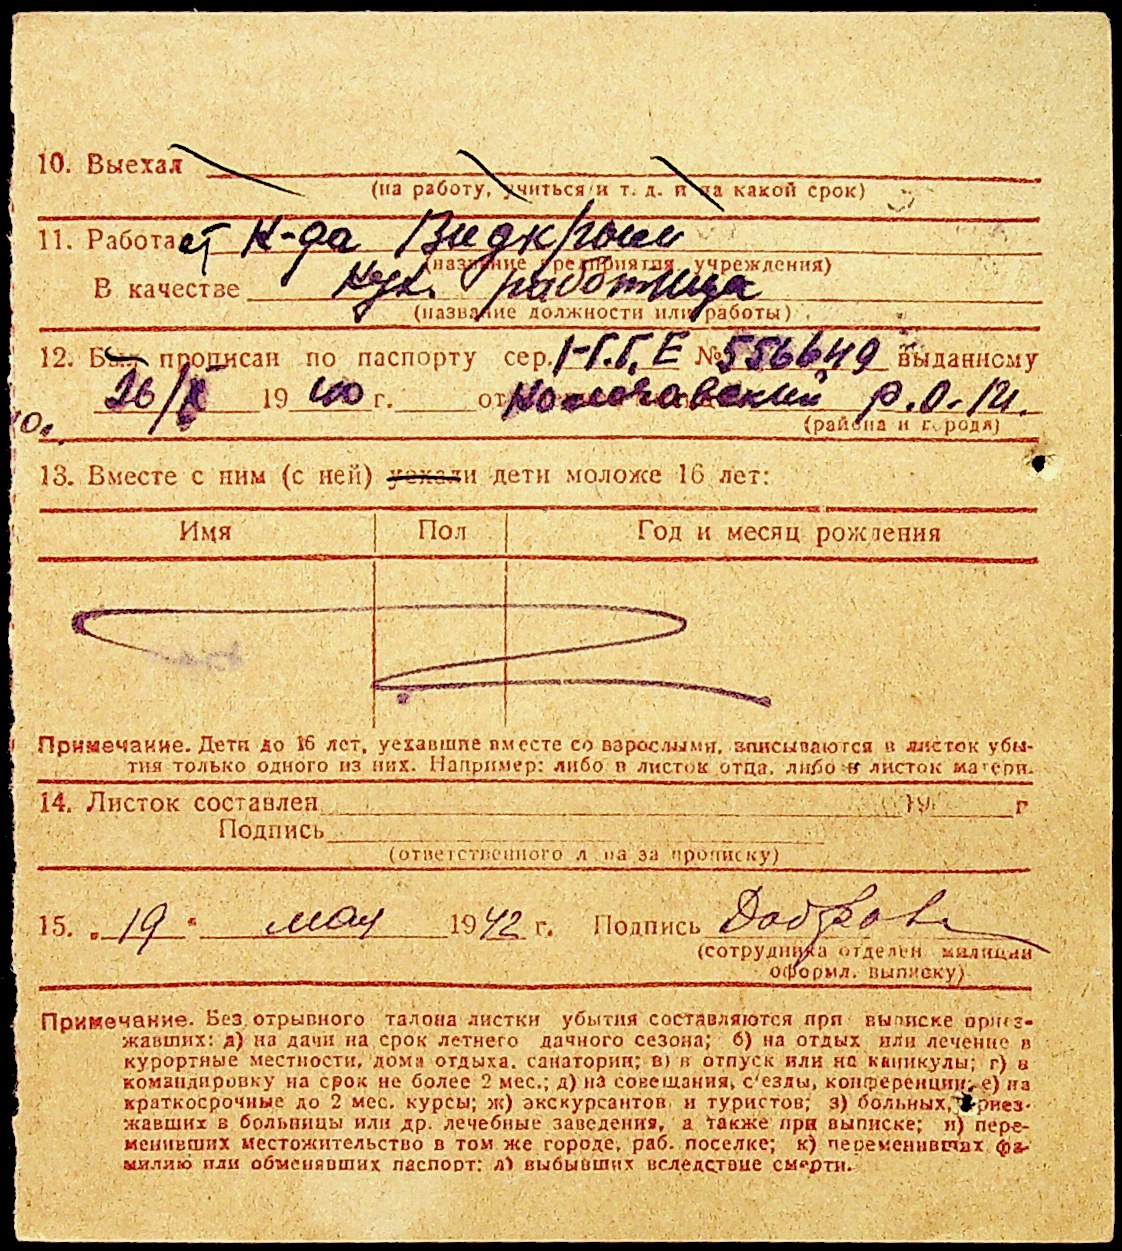 10. Выехал
(на работу, учиться и т. д. и на какой срок)
11. Работает К-да
(название предприятия, учреждения)
В качестве Кух. работница
(название должности или работы)
12. Был прописан по паспорту сер. I-Г.Г.Е № 556649 выданному
26/X 1940 г. от Р.О.М.
(района и города)
13. Вместе с ним (с ней) уехали дети моложе 16 лет:
Имя Пол Год и месяц рождения
Примечание. Дети до 16 лет, уехавшие вместе со взрослыми, вписываются в листок убы-
тия только одного из них. Например: либо в листок отца, либо в листок матери.
14. Листок составлен 19 г
Подпись
(ответственного лица за прописку)
15. „19“ мая 1942 г. Подпись
(сотрудника отделен милиции
оформл. выписку)
Примечание. Без отрывного талона листки убытия составляются при выписке приез-
жавших: а) на дачи на срок летнего дачного сезона; б) на отдых или лечение в
курортные местности, дома отдыха, санатории; в) в отпуск или на каникулы; г) в
командировку на срок не более 2 мес.; д) на совещания, с'езды, конференции; е) на
краткосрочные до 2 мес. курсы; ж) экскурсантов и туристов; з) больных, приез-
жавших в больницы или др. лечебные заведения, а также при выписке; и) пере-
менивших местожительство в том же городе, раб. поселке; к) переменивших фа-
милию или обменявших паспорт; л) выбывших вследствие смерти.